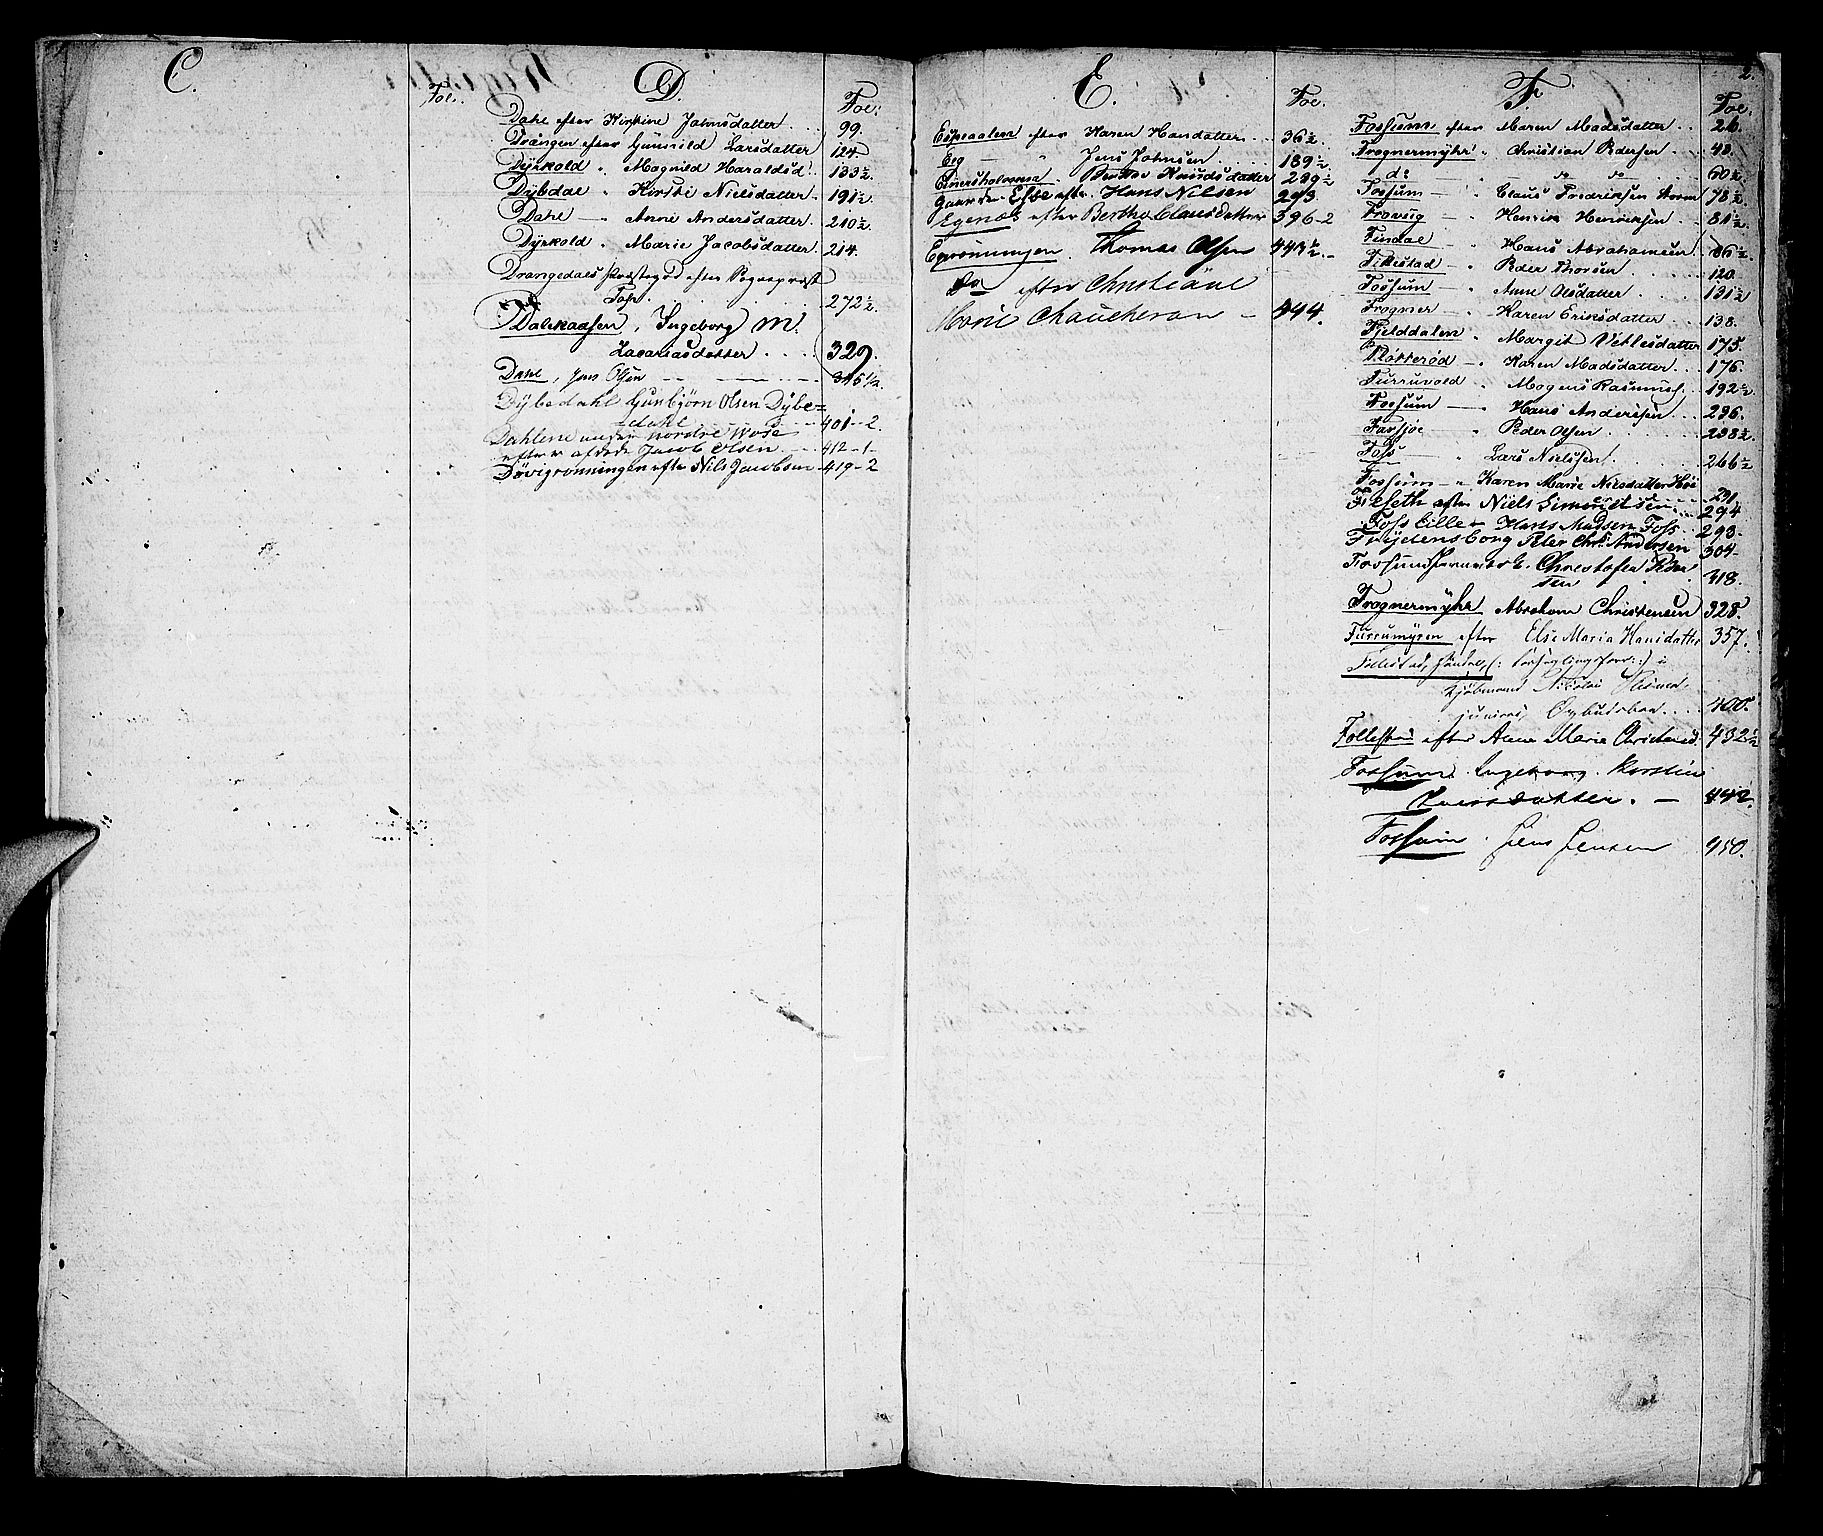 C.
Fol.
D.
Fol:
Dahl efter Kirstine Johnsdatter .... 99.
Drangen efter Gunnild Larsdatter 124.
Dyrkold " Magnild Haraldsd. 133½.
Dybdal " Kirsti Nielsdatter 191½
Dahl — " Anne Andersdatter 210½
Dyrkold " Marie Jacobsdatter 214.
Drangedals Præstegd efter Sogneprest
272½
Dalskaasen, Ingeborg M.
Zacariasdatter .... 329.
Dahl, Jens Olsen — 345½.
Dybedahl Gunbjørn Olsen Dybe=
dahl 401-2.
Dahlene under Nordre Wose
efter afdøde Jacob Olsen. — 412-1-
Døvigrønningen efter Nils Jacobsen - 419-2
E.
Fol.
efter Karen Hansdatter .. 36½
Eeg — " Jens Johnsen ... 189½
Knudsdatter 239½
Hans Nilsen 293
Egenæs efter Berthe Clausdatter 396-2
Egrønningen. Thomas Olsen 443½.-
Do efter Christiane
Marie Chaucheron — 444.
2.
F.
Fol:
Fossum efter Maren Madsdatter .. 26.
Frognermyhr " Christian Pedersen .. 48.
do — " do do .. 60½
Fossum — " Claus Fredriksen Storm 78½
Frovug — " Henrik Henriksen .. 81½
Findal — " Hans Abrahamsen 86½
Fillestad — " Peder Thorsen .... 120.
Fossum — " Anne Olsdatter .... 131½
Frogner — " Karen Eriksdatter ... 138.
Fjelddalen " Margit Vetlesdatter 175.
Flötterød " Karen Madsdatter .... 176.
Furruvold " Mogens Rasmus. 192½
Fossum — " Hans Andersen ... 236.
Farsjøe " Peder Olsen ..... 238½
Foss — " Lars Nielssen ..... 266½
Fossum — " Karen Marie Nilsdatter Höi
291
efter Niels Simonsen ... 294
Foss Lille " Hans Madsen Foss .. 293.
Frydensborg Peter Chr. Andersen 304-
Christofer Peder
sen 318.
Frognermyhr Abraham Christensen 328.
Furrumyren efter Else Maria Hansdatter 357.
Follestad,
Kjøbmand Nikolai
juniors Opbudsbo .... 400.
Follestad efter Anne Maria Christensd. 432½
Fossum. Ingeborg Kirstine
Larsdatter. — 442.
Fossum. Jens Jensen 450.